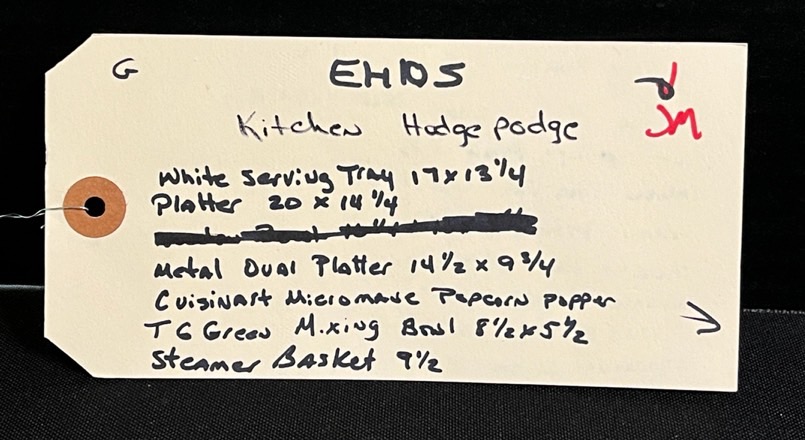 G
EH105
JM
Kitchen Hodge podge
White Serving Tray 17x13 1/4
Platter 20 x 14 1/4
Metal Oval Platter 14 1/2 x 9 3/4
Cuisinart Microwave Popcorn popper
T G Green Mixing Bowl 8 1/2 x 5 1/2
Steamer Basket 9 1/2